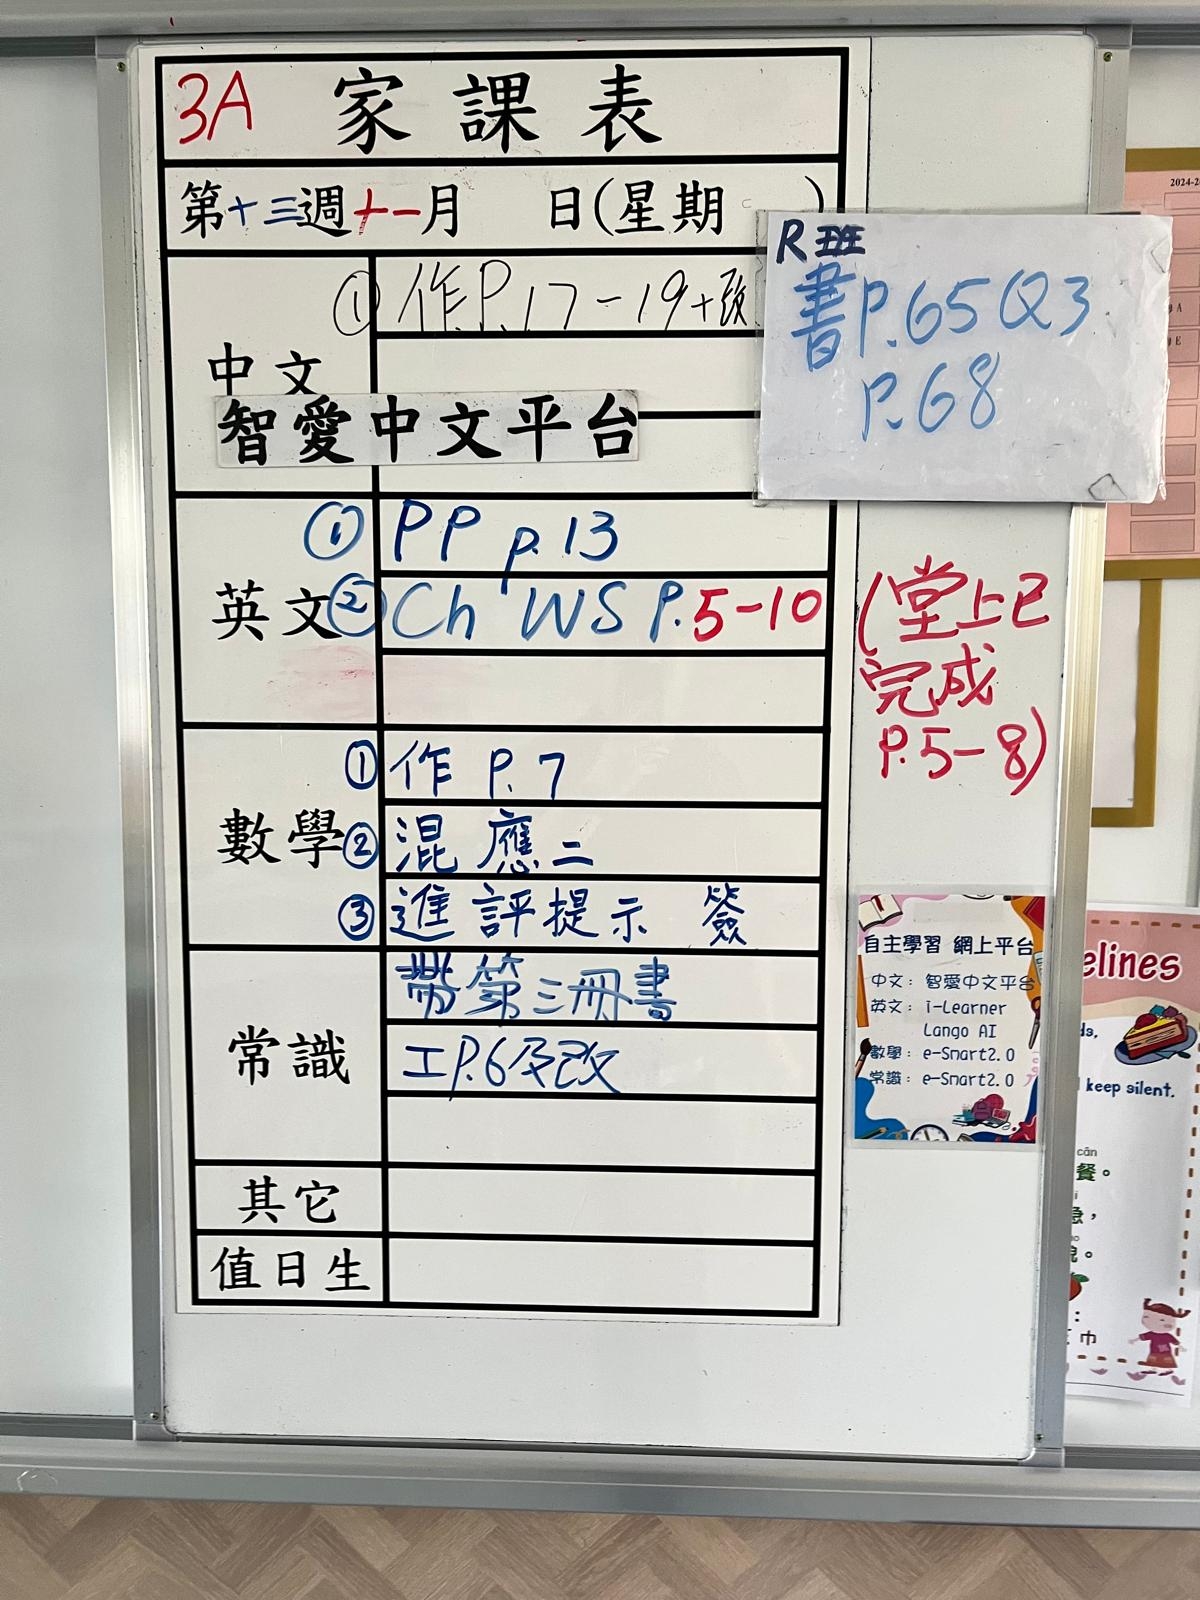 3A 家課表
第十三週十一月 日(星期 )
中文
① 作.P.17-19+改
智愛中文平台
R班
書P.65Q3
P.68
英文
① PP p.13
② Ch WS P.5-10
(堂上已
完成
P.5-8)
數學
① 作 P.7
② 混應二
③ 進評提示 簽
常識
帶第三冊書
工P.6及改
其它
值日生
自主學習 網上平台
中文：智愛中文平台
英文：i-Learner
Lango AI
數學：e-Smart2.0
常識：e-Smart2.0
2024-2
elines
keep silent.
cān
餐。
巾